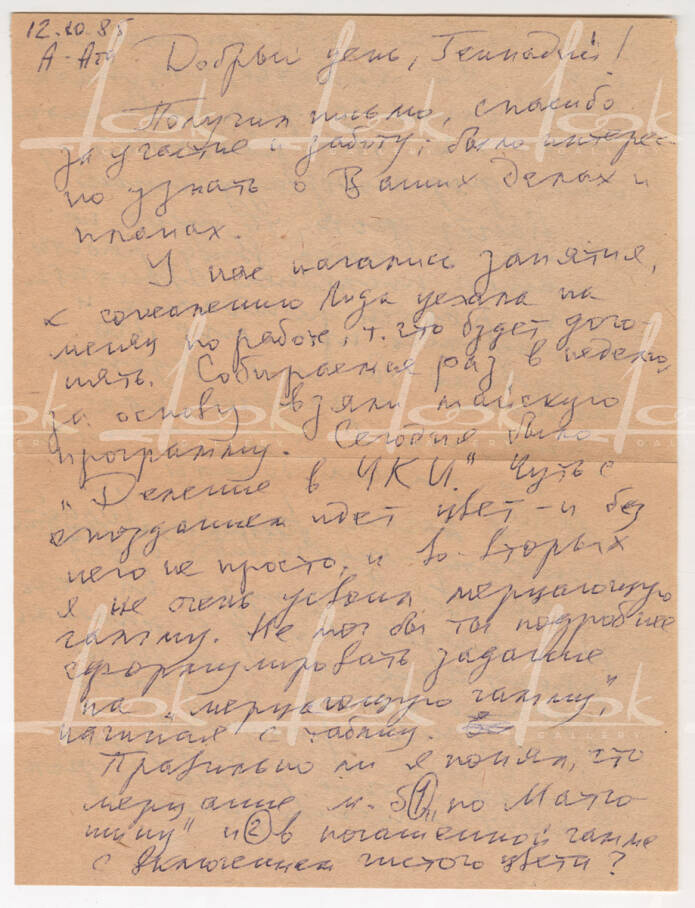 12.10.85
А-Ата Добрый день, Геннадий!
Получил письмо, спасибо
за участие и заботу; было интерес-
но узнать о Ваших делах и
планах.
У нас начались занятия,
к сожалению Лида уехала на
месяц по работе, т. что будет дого-
нять. Собираемся раз в неделю,
за основу взяли майскую
программу. Сегодня было
"Деление в ЧКИ". Чуть с
опозданием идет цвет - и без
него не просто, и во-вторых
я не очень усвоил мерцающую
гамму. Не мог бы ты подробнее
сформулировать задание
на "мерцающую гамму",
начиная с таблиц.
Правильно ли я понял, что
мерцание м.б. 1 "по Матю-
шину" и 2 в погашенной гамме
с включением чистого цвета?
look
GALLERY